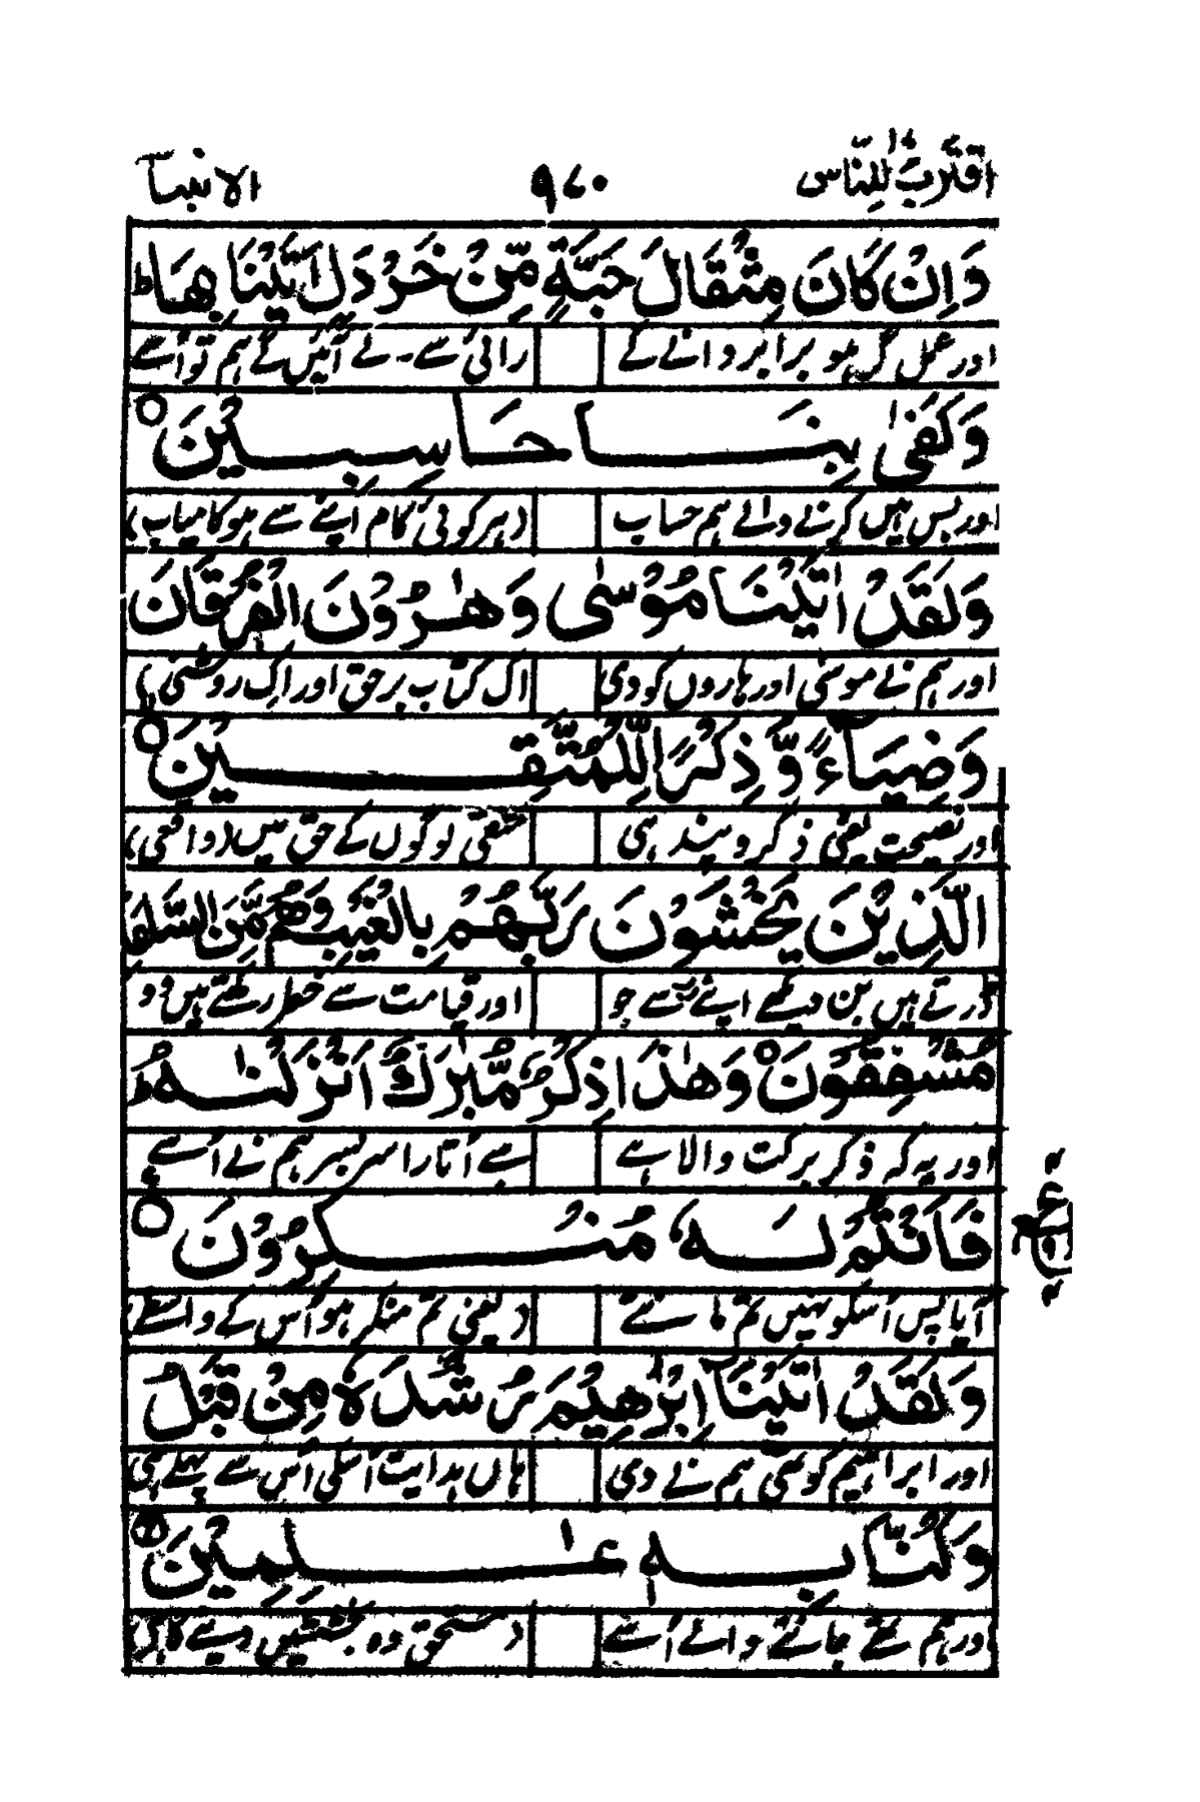 اقترب للناس ۹۷۰ الانبیآ
وَاِنْ كَانَ مِثْقَالَ حَبَّةٍ مِّنْ خَرْدَلٍ اَتَيْنَا بِهَا ؕ
اور عمل گر ہو برابر دانے کے رائی سے۔ لے آئیں گے ہم تو اُسے
وَكَفٰى بِنَا حَاسِبِيْنَ ○
اور بس ہیں کرنے والے ہم حساب (ہر کوئی کام اپنے سے ہو کامیاب)
وَلَقَدْ اٰتَيْنَا مُوْسٰى وَهٰرُوْنَ الْفُرْقَانَ
اور ہم نے موسٰی اور ہاروں کو دی اک کتاب برحق اور اک روشنی
وَضِيَآءً وَّذِكْرًا لِّلْمُتَّقِيْنَ ○
اور نصیحت یعنی ذکر و پند ہی متقی لوگوں کے حق میں (واقعی)
الَّذِيْنَ يَخْشَوْنَ رَبَّهُمْ بِالْغَيْبِ وَهُمْ مِّنَ السَّاعَةِ
ڈرتے ہیں بن دیکھے اپنے رب سے جو اور قیامت سے خطر رکھتے ہیں وہ
مُشْفِقُوْنَ ○ وَهٰذَا ذِكْرٌ مُّبٰرَكٌ اَنْزَلْنٰهُ ؕ
اور یہ کہ ذکر برکت والا ہے ہے اُتارا سر بسر ہم نے اُسے
فَاَنْتُمْ لَهٗ مُنْكِرُوْنَ ○
آیا پس اُسکو نہیں تم مانتے (یعنی تم منکر ہو اُس کے واسطے)
وَلَقَدْ اٰتَيْنَآ اِبْرٰهِيْمَ رُشْدَهٗ مِنْ قَبْلُ
اور ابراہیم کو بھی ہم نے دی ہاں ہدایت اُسکی اُس سے پہلے ہی
وَكُنَّا بِهٖ عٰلِمِيْنَ ○
اور ہم تھے جانتے والے اُسے (مستحق وہ